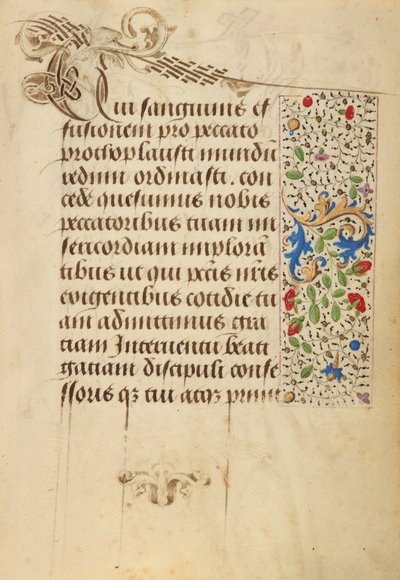 Tui sanguinis ef
fusionem pro peccato
prothoplausti mundū
redimi ordinasti. con
cede quesumus nobis
peccatoribus tuam mi
sericordiam implorā
tibus ut qui pctīs nr̄is
exigentibus cotidie tu
am admittimus gra
tiam Interuentu beati
gatiani discipuli confe
ssoris qꝫ tui atqꝫ primi